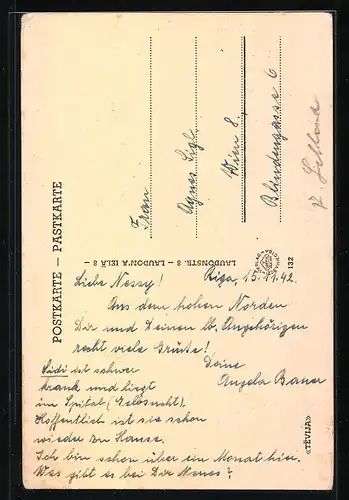 POSTKARTE – PASTKARTE
Frau
Agnes Sigl,
Wien 8,
Blindengasse 6
LAUDONSTR. 8 - LAUDONA IELĀ 8 -
132
«TĒVIJA»
Riga, 15.11.42.
Liebe Nessy!
Aus dem hohen Norden
Dir und Deinen lb. Angehörigen
recht viele Grüße!
Deine
Angela Bauer
Sidi ist schwer
krank und liegt
im Spital (Gelbsucht).
Hoffentlich ist sie schon
wieder zu Hause.
Ich bin schon über ein Monat hier.
Was gibt es bei Dir Neues?